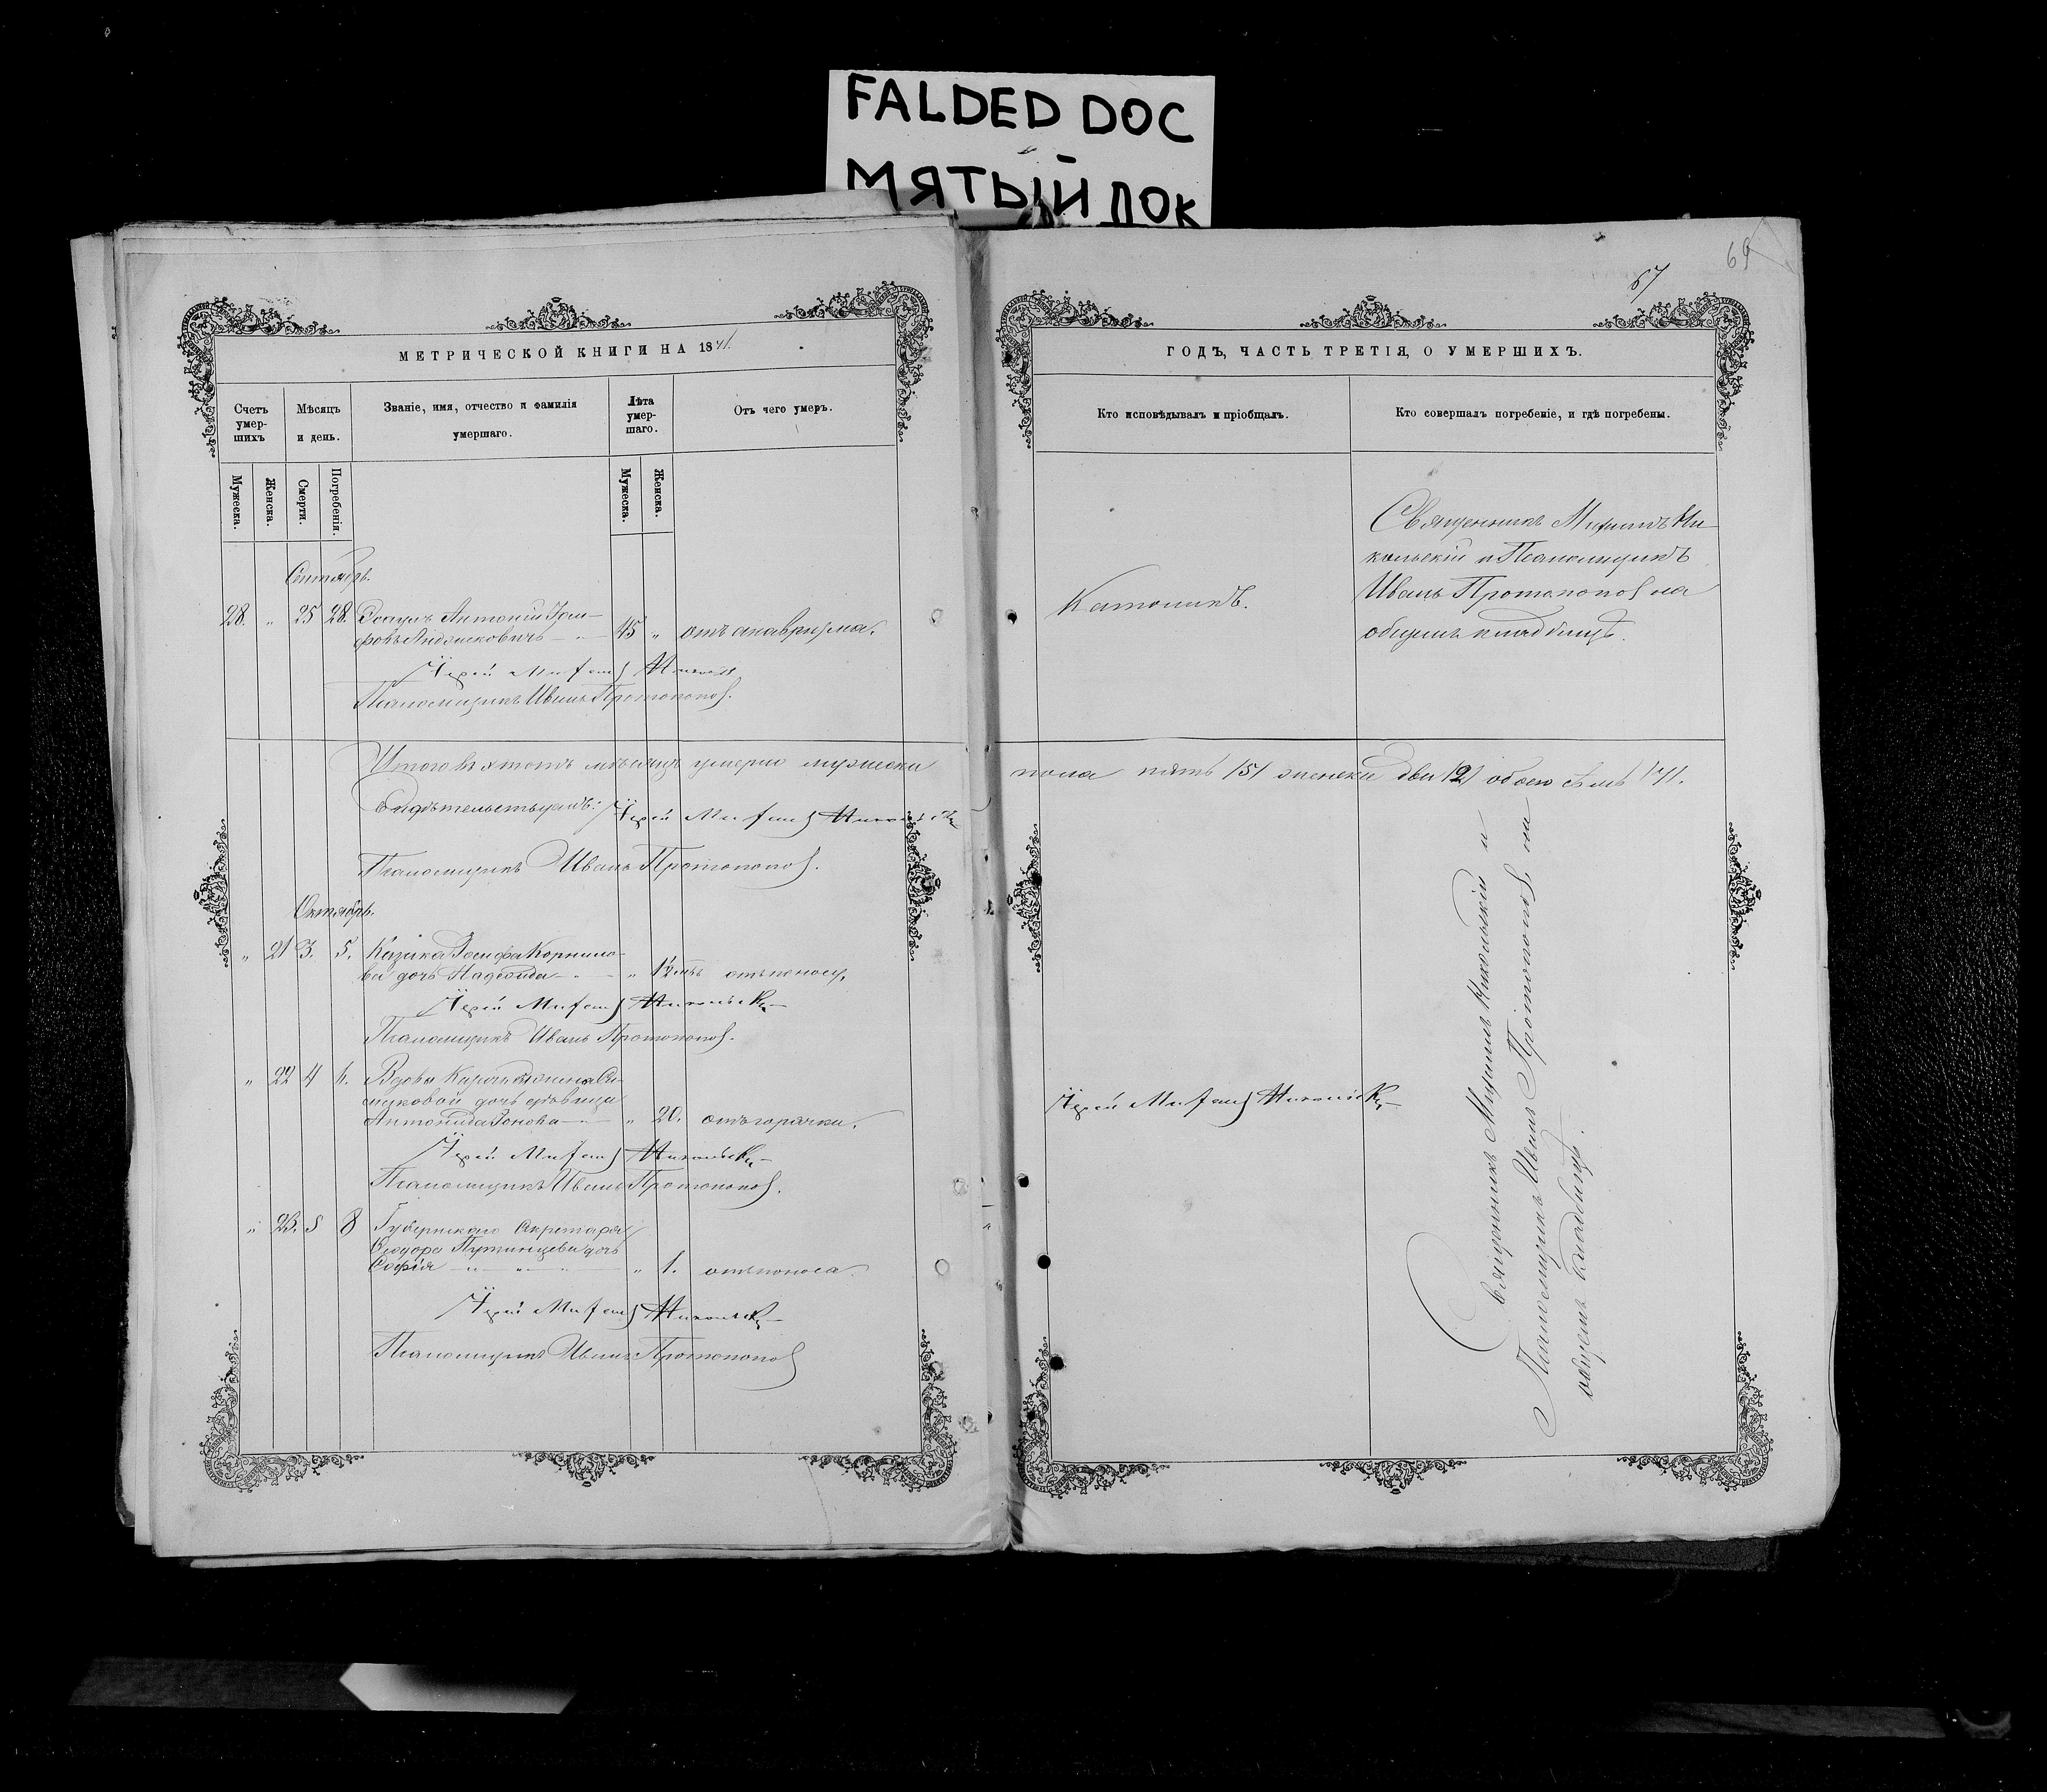 FALDED DOC
МЯТЫЙ ДОК
69
67
МЕТРИЧЕСКОЙ КНИГИ НА 1871.
Счетъ умер-шихъ
Мѣсяцъ и день.
Званіе, имя, отчество и фамилія умершаго.
Лѣта умер-шаго.
Отъ чего умеръ.
Мужеска.
Женска.
Смерти.
Погребенія.
Мужеска.
Женска.
Сентябрь.
28. " 25 28. Антоній Іоси-
фовъ 45 " отъ
Іерей Михаилъ Никольскій
Псаломщикъ Иванъ Протопоповъ.
Итого въ этомъ мѣсяцѣ умерло мужеска
Свидѣтельствуютъ: Іерей Михаилъ Никольскій
Псаломщикъ Иванъ Протопоповъ.
Октябрь.
" 21 3. 5. Казака Іосифа Корнило-
ва дочь Надежда " 1½ отъ поносу.
Іерей Михаилъ Никольскій
Псаломщикъ Иванъ Протопоповъ.
" 22 4 6. Вдовы
дочь дѣвица
Антонида " 20. отъ горячки.
Іерей Михаилъ Никольскій
Псаломщикъ Иванъ Протопоповъ.
" 23. 5 8 Губернскаго Секретаря
Ѳеодора Путинцева дочь
Софія " 1. отъ поноса.
Іерей Михаилъ Никольскій
Псаломщикъ Иванъ Протопоповъ
ГОДЪ, ЧАСТЬ ТРЕТІЯ, О УМЕРШИХЪ.
Кто исповѣдывалъ и пріобщалъ.
Кто совершалъ погребеніе, и гдѣ погребены.
Католикъ.
Священникъ Михаилъ Ни-
кольскій и Псаломщикъ
Иванъ Протопоповъ на
общемъ кладбищѣ.
пола пять /5/ женска две /2/ обоего семь /7/.
Іерей Михаилъ Никольскій
Священникъ Михаилъ Никольскій и
Псаломщикъ Иванъ Протопоповъ, на
общемъ кладбищѣ.